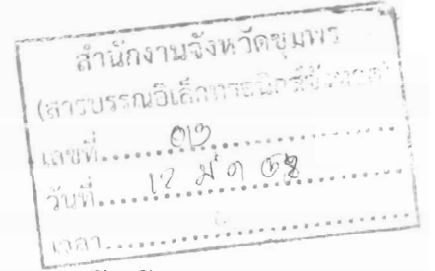 สำนักงานจังหวัดชุมพร
(สารบรรณอิเล็กทรอนิกส์จังหวัด)
เลขที่..........
วันที่..... 12 มี ค ..........
เวลา..........